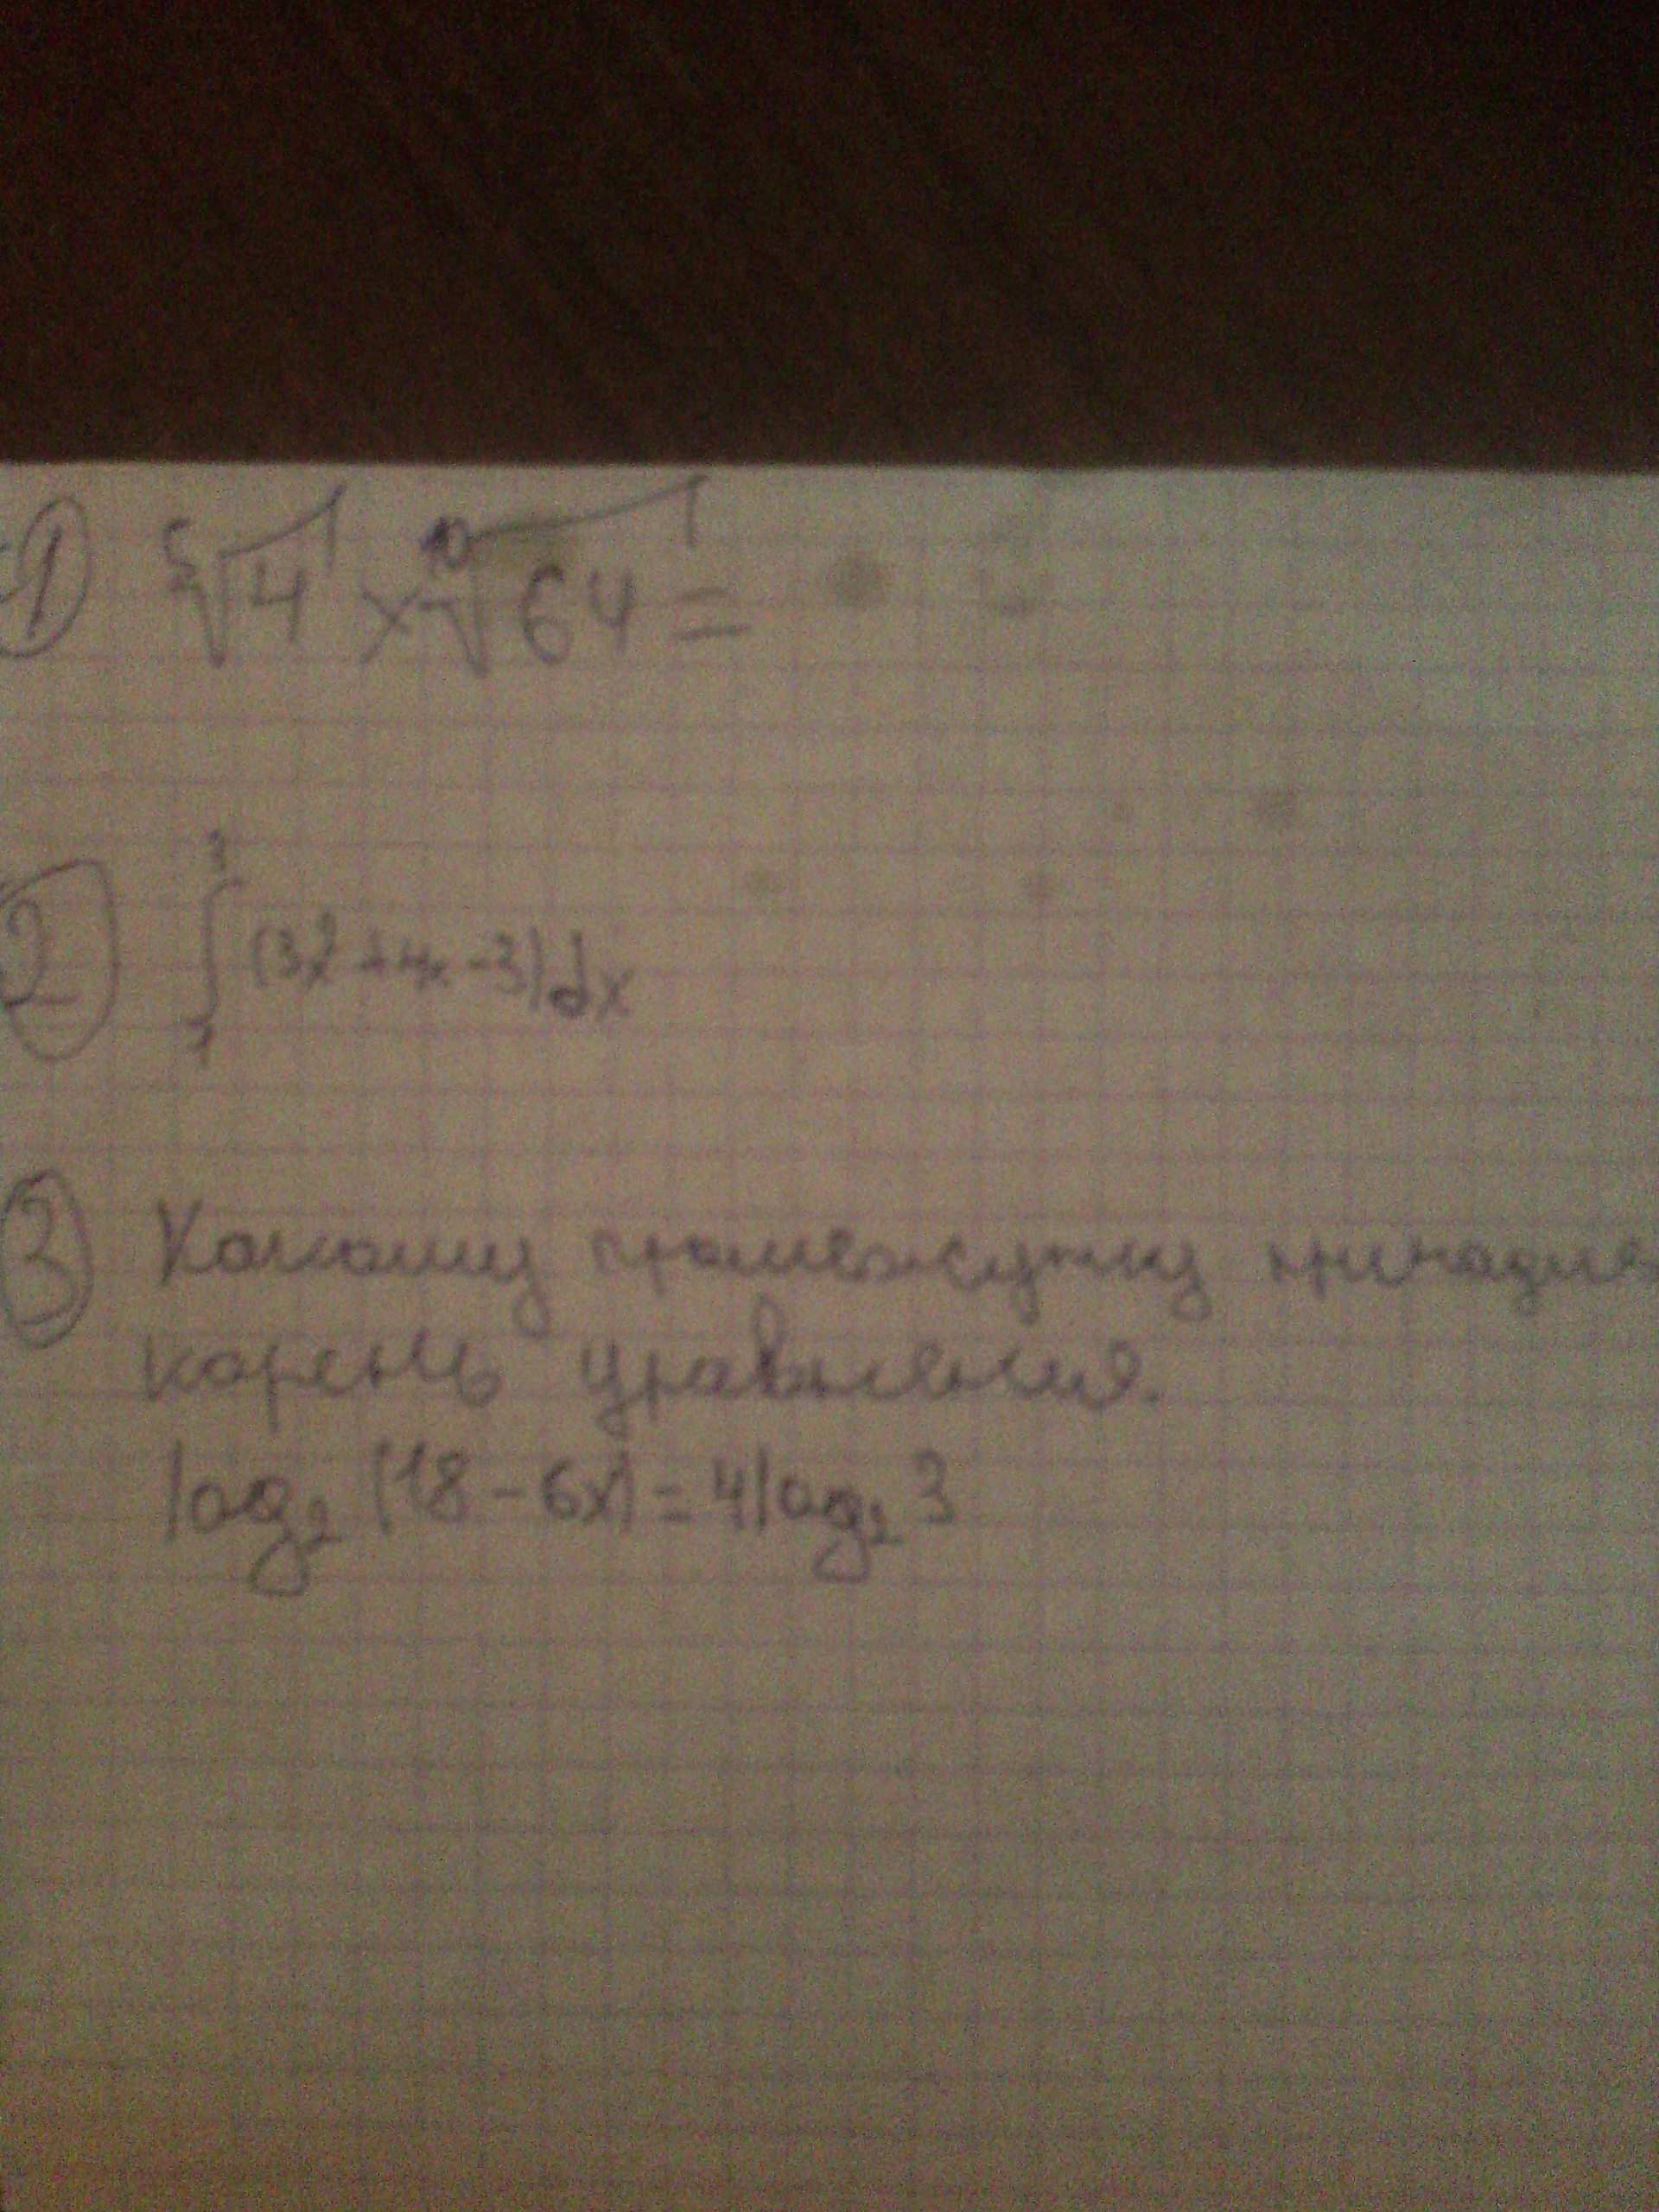 1 ⁵√4 × ¹⁰√64 =
2 ∫₁³ (3x² + 4x - 3) dx
3 Какому промежутку принадле
корень уравнения.
log₂ (18 - 6x) = 4 log₂ 3